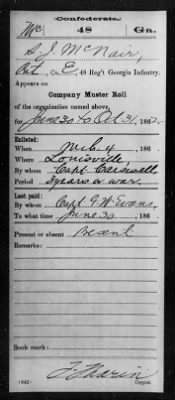 Confederate.
Mc 48 Ga.
S. J. McNair,
Co. E, 48 Reg't Georgia Infantry.
Appears on
Company Muster Roll
of the organization named above,
for June 30 to Oct 31, 1862.
Enlisted:
When Mch 4, 186
Where Louisville,
By whom Capt. Carswell
Period 3 years or war.
Last paid:
By whom Capt. G. W. Evans,
To what time June 30, 186
Present or absent
Remarks:
Book mark:
(642)
Copyist.